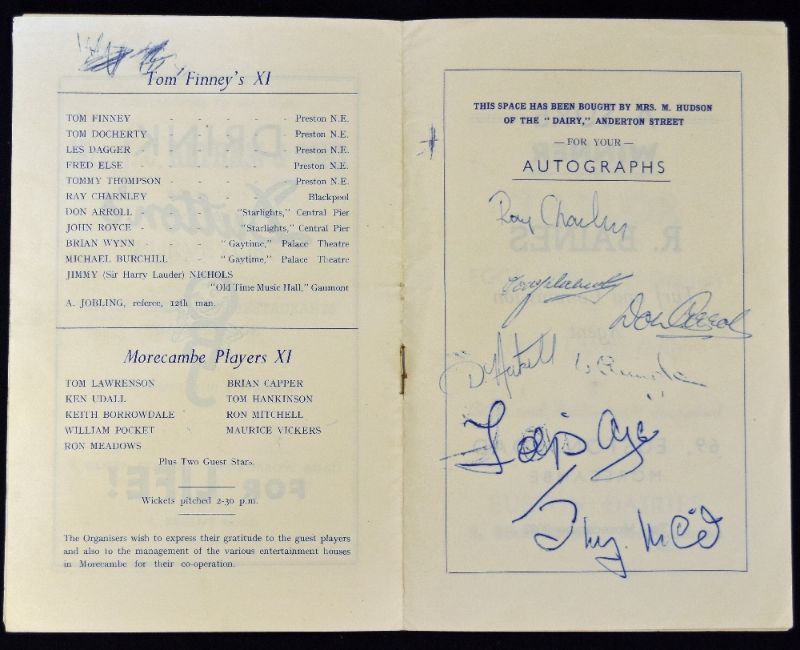 Tom Finney's XI
TOM FINNEY - - - - Preston N.E.
TOM DOCHERTY - - - - Preston N.E.
LES DAGGER - - - - Preston N.E.
FRED ELSE - - - - Preston N.E.
TOMMY THOMPSON - - - Preston N.E.
RAY CHARNLEY - - - - Blackpool
DON ARROLL - - "Starlights," Central Pier
JOHN ROYCE - - "Starlights," Central Pier
BRIAN WYNN - - "Gaytime," Palace Theatre
MICHAEL BURCHILL - "Gaytime," Palace Theatre
JIMMY (Sir Harry Lauder) NICHOLS
"Old Time Music Hall," Gaumont
A. JOBLING, referee, 12th man.
Morecambe Players XI
TOM LAWRENSON BRIAN CAPPER
KEN UDALL TOM HANKINSON
KEITH BORROWDALE RON MITCHELL
WILLIAM POCKET MAURICE VICKERS
RON MEADOWS
Plus Two Guest Stars.
Wickets pitched 2-30 p.m.
The Organisers wish to express their gratitude to the guest players
and also to the management of the various entertainment houses
in Morecambe for their co-operation.
THIS SPACE HAS BEEN BOUGHT BY MRS. M. HUDSON
OF THE "DAIRY," ANDERTON STREET
—FOR YOUR—
AUTOGRAPHS
Ray Charnley
Don Arrol